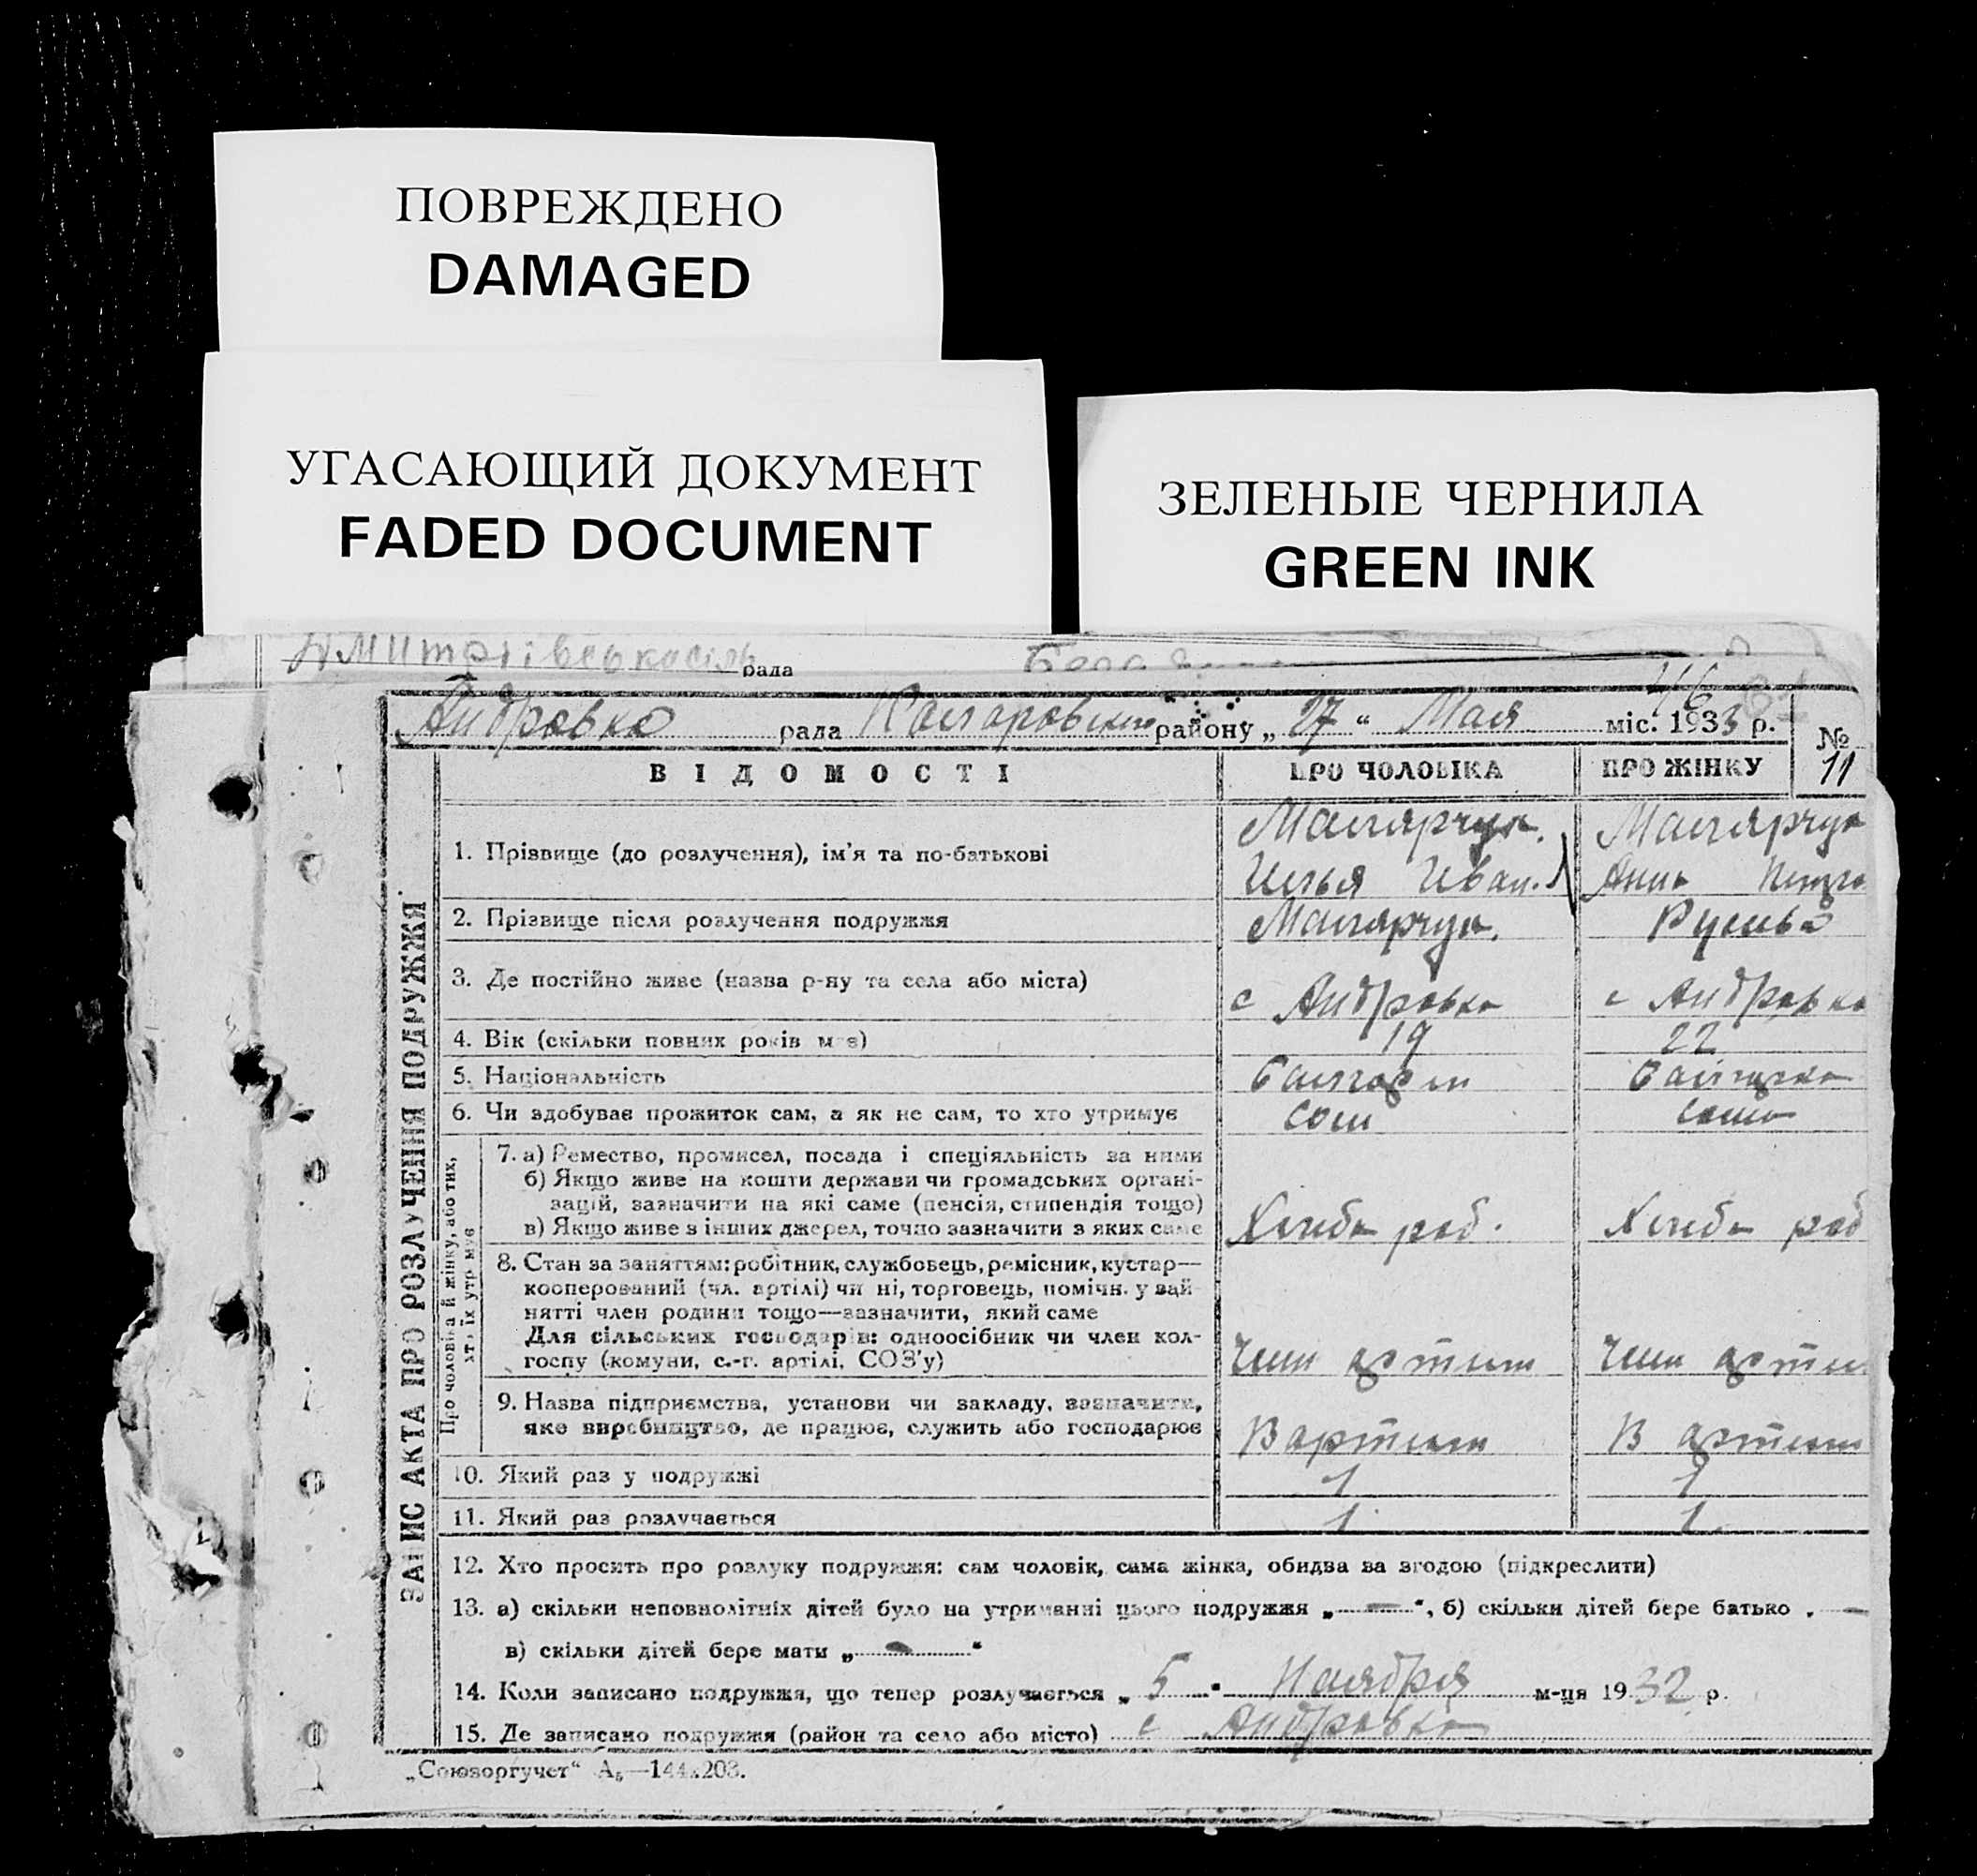 ПОВРЕЖДЕНО
DAMAGED
УГАСАЮЩИЙ ДОКУМЕНТ
FADED DOCUMENT
ЗЕЛЕНЫЕ ЧЕРНИЛА
GREEN INK
рада
Андровка рада района „ 27 “ Мая міс. 1933 р.
№ 11
ВІДОМОСТІ
ПРО ЧОЛОВІКА
ПРО ЖІНКУ
ЗАПИС АКТА ПРО РОЗЛУЧЕННЯ ПОДРУЖЖЯ
1. Прізвище (до розлучення), ім'я та по-батькові
Малярчук.
Илья Иван.
Малярчук
Анна
2. Прізвище після розлучення подружжя
Малярчук.
3. Де постійно живе (назва р-ну та села або міста)
с Андровка
с Андровка
4. Вік (скільки повних років має)
19
22
5. Національність
Болгарин
Болгарка
6. Чи здобуває прожиток сам, а як не сам, то хто утримує
сам
сама
Про чоловіка й жінку, або тих,
хто їх утримує
7. а) Ремество, промисел, посада і спеціяльність за ними
б) Якщо живе на кошти держави чи громадських органі-
зацій, зазначити на які саме (пенсія, стипендія тощо)
в) Якщо живе з інших джерел, точно зазначити з яких саме
Хлеба роб.
Хлеба роб
8. Стан за заняттям: робітник, службовець, ремісник, кустар—
кооперований (чл. артілі) чи ні, торговець, помічн. у зай-
нятті член родини тощо—зазначити, який саме
Для сільських господарів: одноосібник чи член кол-
госпу (комуни, с.-г. артілі, СОЗ'у)
Член артели
Член арте
9. Назва підприємства, установи чи закладу, зазначити,
яке виробництво, де працює, служить або господарює
В артели
В артели
10. Який раз у подружжі
1
1
11. Який раз розлучається
1
1
12. Хто просить про розлуку подружжя: сам чоловік, сама жінка, обидва за згодою (підкреслити)
13. а) скільки неповнолітніх дітей було на утриманні цього подружжя „ — “, б) скільки дітей бере батько „ —
в) скільки дітей бере мати „ — “
14. Коли записано подружжя, що тепер розлучається „ 5 “ Ноября м-ця 1932 р.
15. Де записано подружжя (район та село або місто) с Андровка
„Союзоргучет“